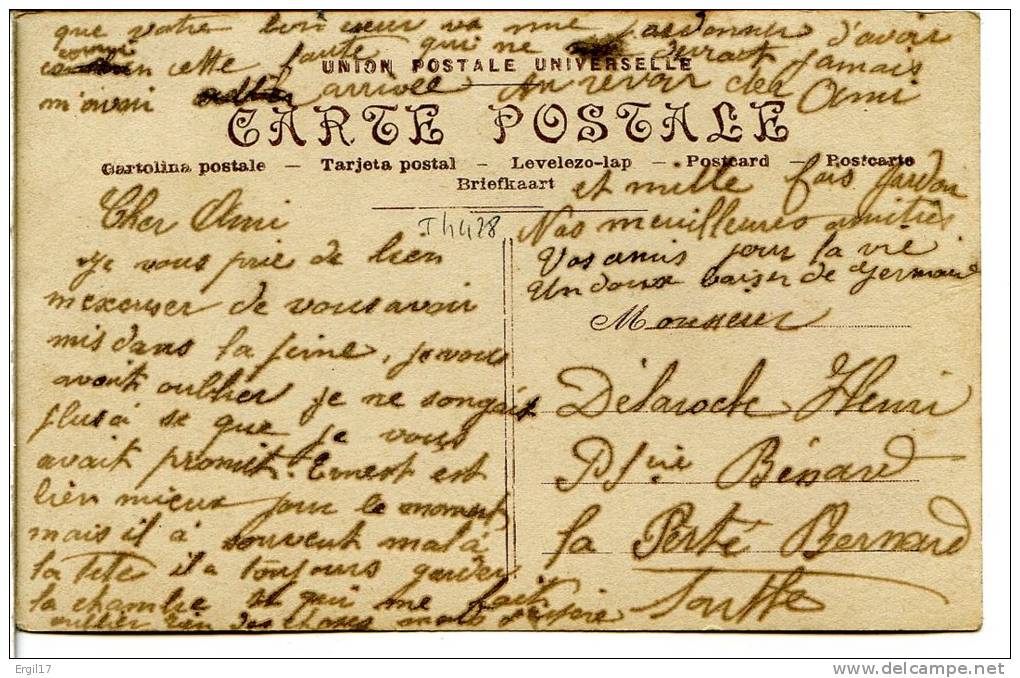 que votre bon cœur va me pardonner d'avoir
commis cette faute qui ne durait jamais
UNION POSTALE UNIVERSELLE
m'avoir arrivée Au revoir cher Ami
CARTE POSTALE
Cartolina postale — Tarjeta postal — Levelezo-lap — Postcard — Postcarte
Briefkaart
et mille fois pardon
Nos meuilleures amitiés
Vos amis pour la vie
Un doux baiser de Germaine
Th 428
Cher Ami
Je vous prie de bien
m'excuser de vous avoir
mis dans la peine, je vous
avait oublier je ne songais
plus à se que je vous
avait promit. Ernest est
bien mieux pour le moment
mais il à souvent mal à
la tête il a toujours garder
la chambre se qui me fait
oublier bien des choses mais j'espère
Monsieur
Délaroche Henri
Bénard
la Ferté Bernard
Sarthe
Ergil17
www.delcampe.net